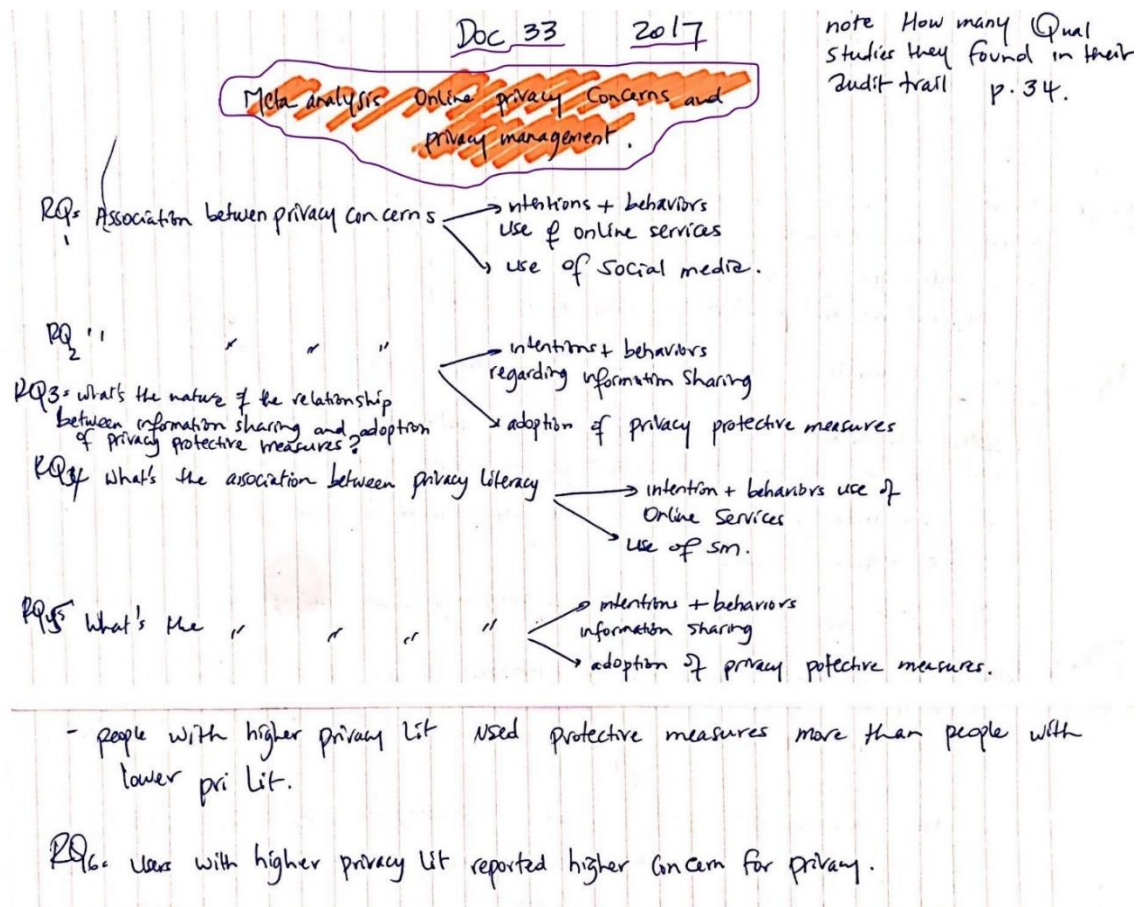 Doc 33 2017
note How many Qual
studies they found in their
audit trail p.34.
Meta analysis Online privacy Concerns and
privacy management.
RQ1: Association betwen privacy concerns
intentions + behaviors
use of online services
use of social media.
RQ2 " " " "
intentions + behaviors
regarding information sharing
adoption of privacy protective measures
RQ3: what's the nature of the relationship
between information sharing and adoption
of privacy protective measures?
RQ4 What's the association between privacy literacy
intention + behaviors use of
Online Services
use of sm.
RQ5 What's the " " " "
intentions + behaviors
information sharing
adoption of privacy potective measures.
- people with higher privacy lit used protective measures more than people with
lower pri lit.
RQ6: users with higher privacy lit reported higher concern for privacy.